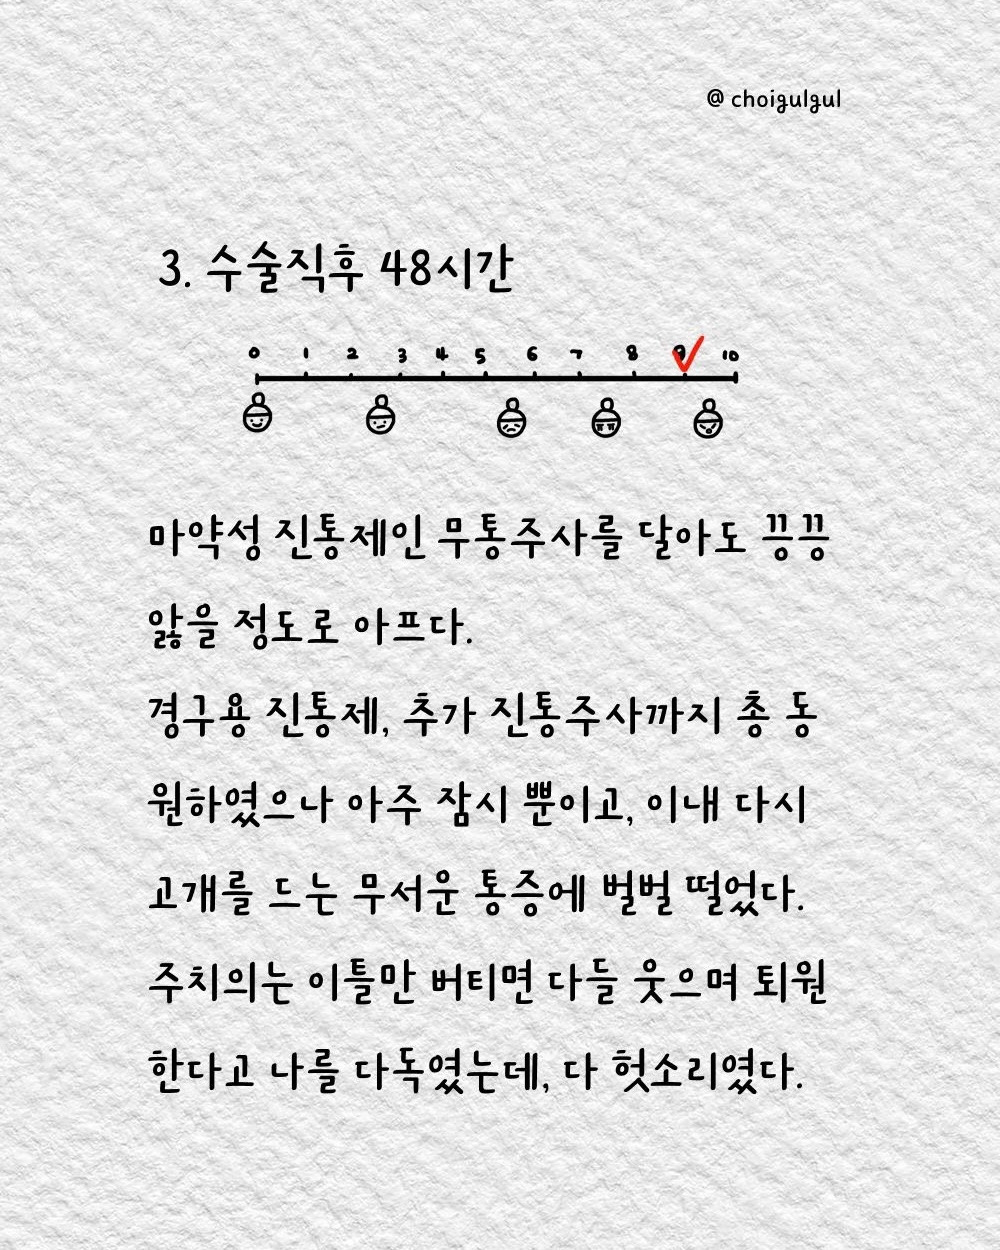 @ choigulgul
3. 수술직후 48시간
0 1 2 3 4 5 6 7 8 9 10
마약성 진통제인 무통주사를 달아도 끙끙
앓을 정도로 아프다.
경구용 진통제, 추가 진통주사까지 총 동
원하였으나 아주 잠시 뿐이고, 이내 다시
고개를 드는 무서운 통증에 벌벌 떨었다.
주치의는 이틀만 버티면 다들 웃으며 퇴원
한다고 나를 다독였는데, 다 헛소리였다.